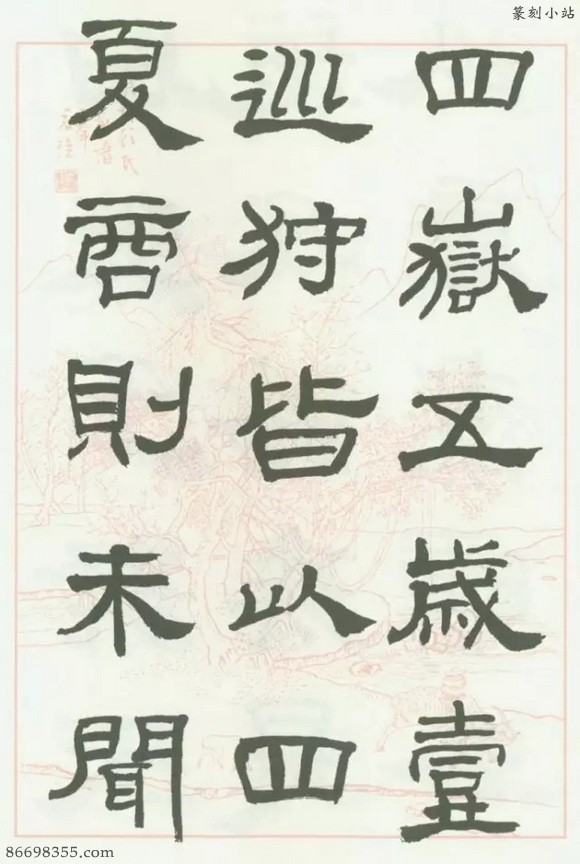 篆刻小站
四嶽五歳壹
巡狩皆以四
夏啇則未聞
86698355.com